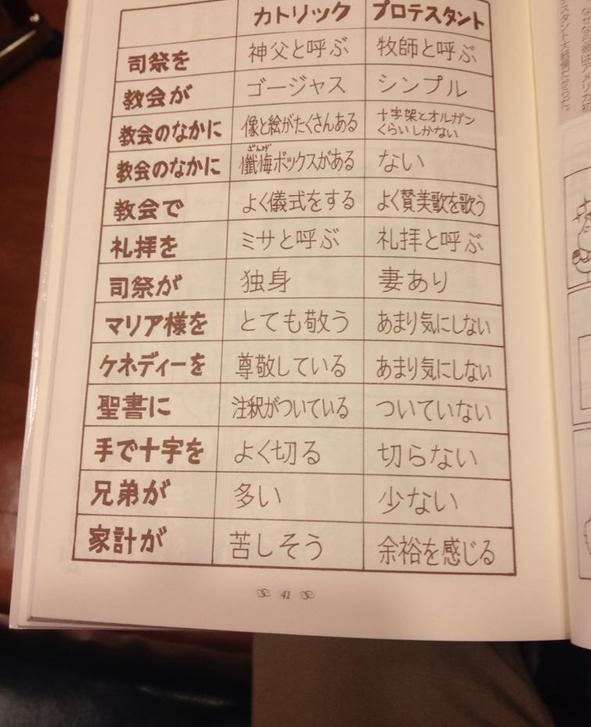 カトリック プロテスタント
司祭を 神父と呼ぶ 牧師と呼ぶ
教会が ゴージャス シンプル
教会のなかに 像と絵がたくさんある 十字架とオルガン
くらいしかない
ざんげ
教会のなかに 懺悔ボックスがある ない
教会で よく儀式をする よく賛美歌を歌う
礼拝を ミサと呼ぶ 礼拝と呼ぶ
司祭が 独身 妻あり
マリア様を とても敬う あまり気にしない
ケネディーを 尊敬している あまり気にしない
聖書に 注釈がついている ついていない
手で十字を よく切る 切らない
兄弟が 多い 少ない
家計が 苦しそう 余裕を感じる
41